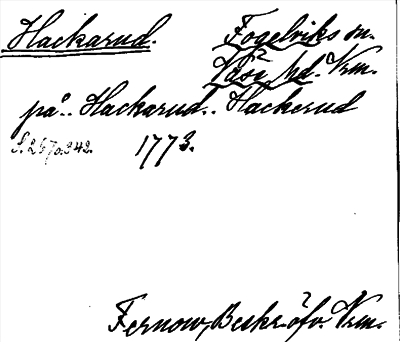 Hackarud. Fogelviks sn.
Väse hd. Vrm.
på.. Hackarud.. Hackerud
S. 267 o. 342. 1773.
Fernow, Beskr. öfv. Vrm.